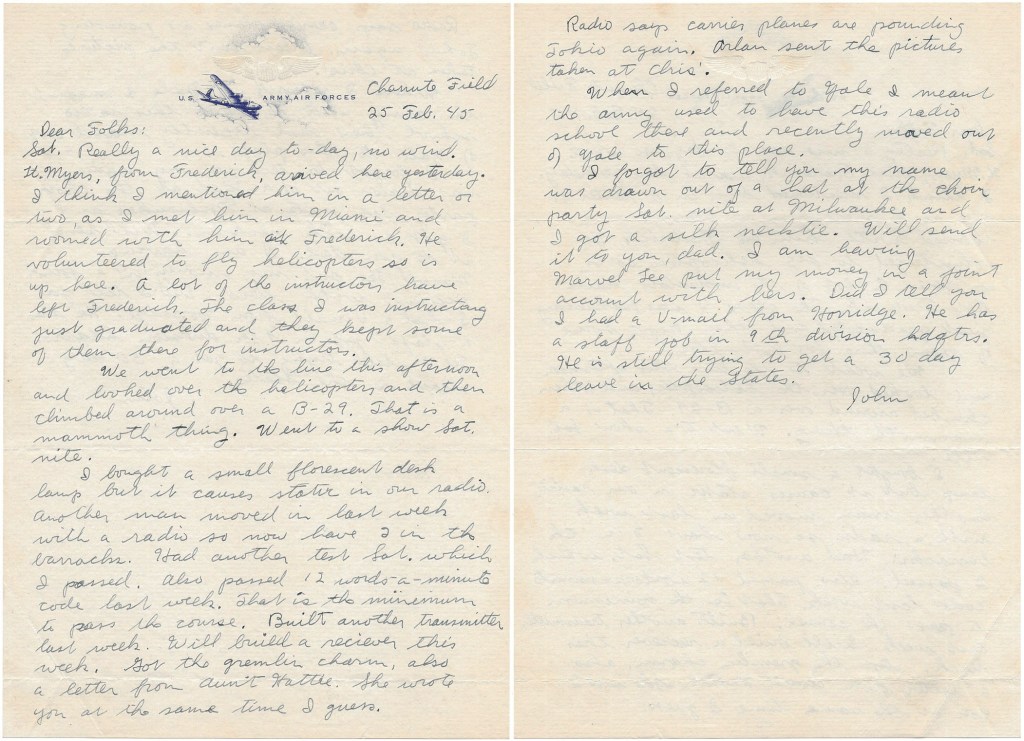 U.S. ARMY AIR FORCES
Chanute Field
25 Feb. 45
Dear Folks:
Sat. Really a nice day to-day, no wind.
Lt. Myers, from Frederick, arived here yesterday.
I think I mentioned him in a letter or
two, as I met him in Miami and
roomed with him at Frederick. He
volunteered to fly helicopters so is
up here. A lot of the instructors have
left Frederick. The class I was instructing
just graduated and they kept some
of them there for instructors.
We went to the line this afternoon
and looked over the helicopters and then
climbed around over a B-29. That is a
mammoth thing. Went to a show Sat.
nite.
I bought a small florescent desk
lamp but it causes static in our radio.
Another man moved in last week
with a radio so now have 2 in the
barracks. Had another test Sat. which
I passed. Also passed 12 words-a-minute
code last week. That is the minimum
to pass the course. Built another transmitter
last week. Will build a reciever this
week. Got the gremlin charm, also
a letter from Aunt Hattie. She wrote
you at the same time I guess.
Radio says carrier planes are pounding
Tokio again. Arlan sent the pictures
taken at Chris'.
When I referred to Yale I meant
the army used to have this radio
school there and recently moved out
of Yale to this place.
I forgot to tell you my name
was drawn out of a hat at the choir
party Sat. nite at Milwaukee and
I got a silk necktie. Will send
it to you, dad. I am having
Marvel Lee put my money in a joint
account with hers. Did I tell you
I had a V-mail from Horridge. He has
a staff job in 9th division hdqtrs.
He is still trying to get a 30 day
leave in the States.
John